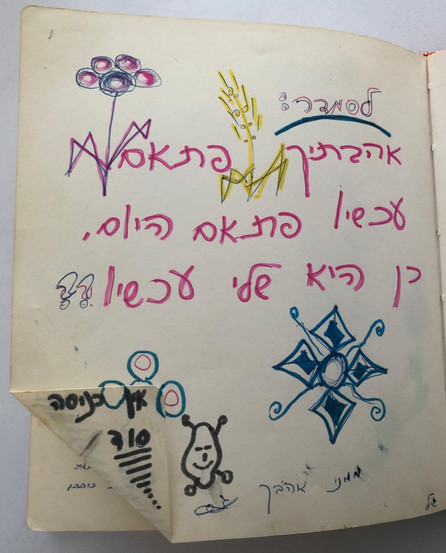 לסמדר:
אהבתיך פתאם
עכשיו פתאם היום,
כן היא שלי עכשיו
אין כניסה
סוד
ממני אהבך